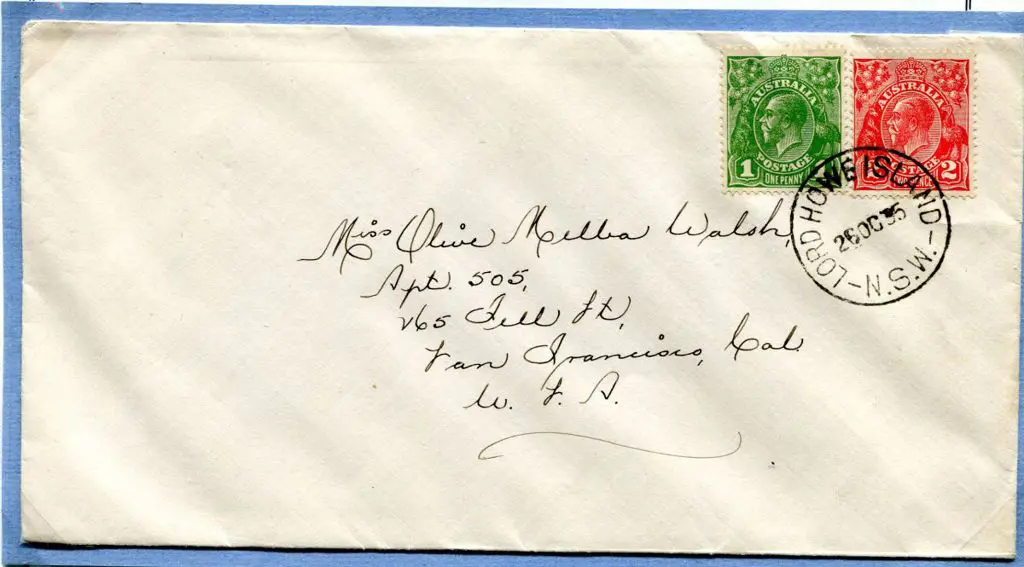 AUSTRALIA
POSTAGE
1
ONE PENNY
AUSTRALIA
POSTAGE
2
LORD HOWE ISLAND - N.S.W.
26 OC 35
Miss Olive Melba Walsh,
Apt. 505,
765 Fell St,
San Francisco, Cal.
U. S. A.